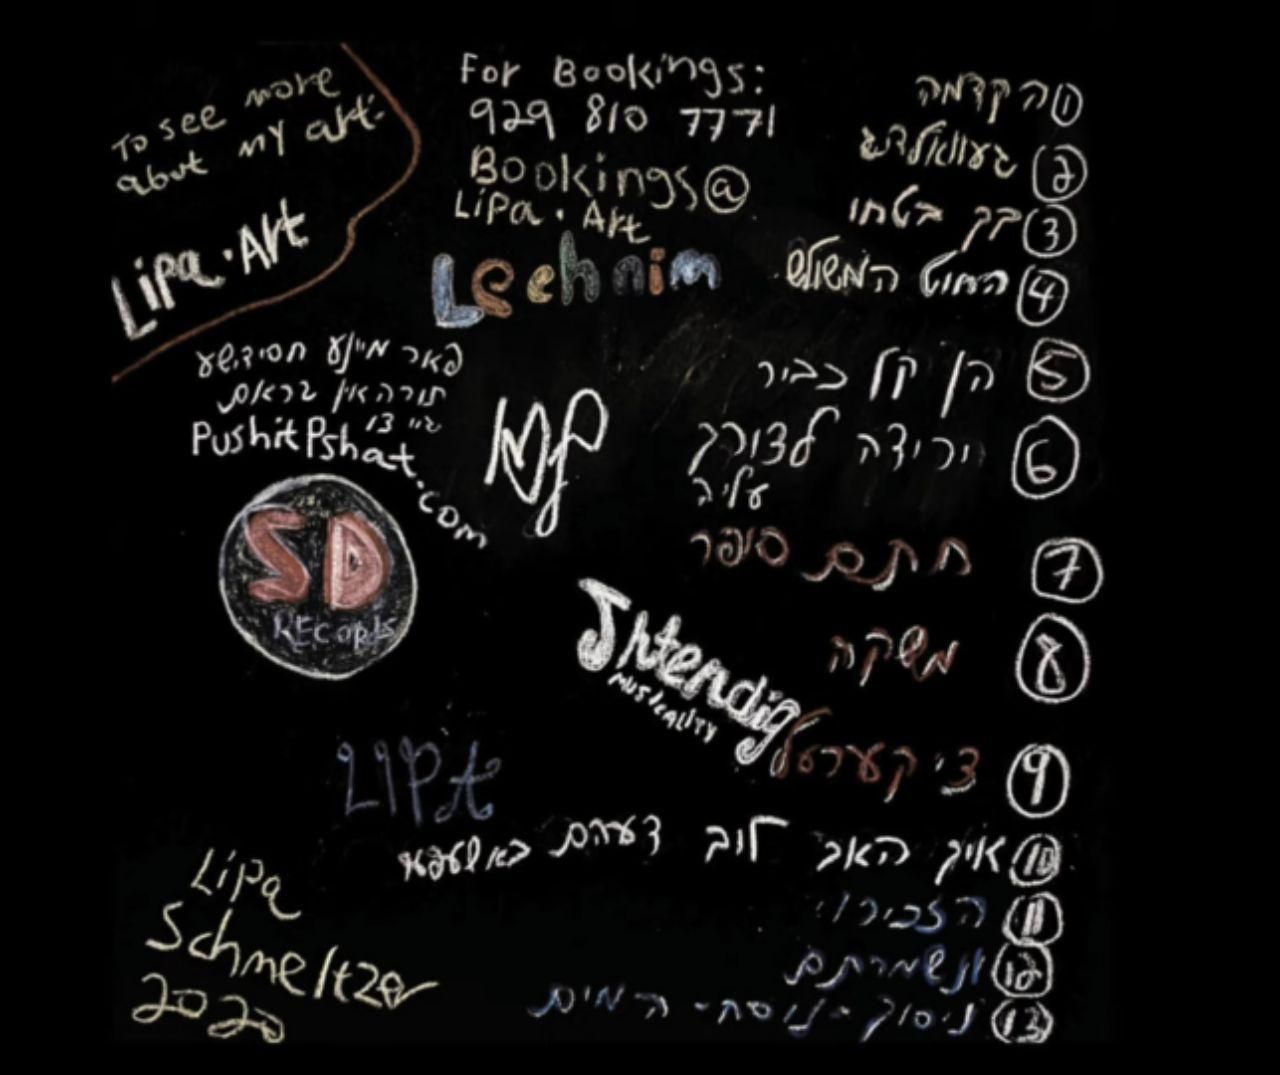 To see more
about my art:
Lipa.Art
For Bookings:
929 810 7771
Bookings@
Lipa.Art
Leehnim
פאר מיינע חסידישע
תורה אין גראם
גיי צו
PushitPshat.com
SD
RECORDS
Shtendig
MUSICALITY
LIPA
Lipa
Schmeltzer
2020
1 הקדמה
2 געוואלדיג
3 בך בטחו
4 החוט המשולש
5 הן קל כביר
6 ירידה לצורך
עליה
7 חתם סופר
8 משקה
9 די קערטל
10 איך האב לוב דעהם באשעפא
11 הזכירוי
12 ונשמרתם
13 ניסוך - נוסח - המים